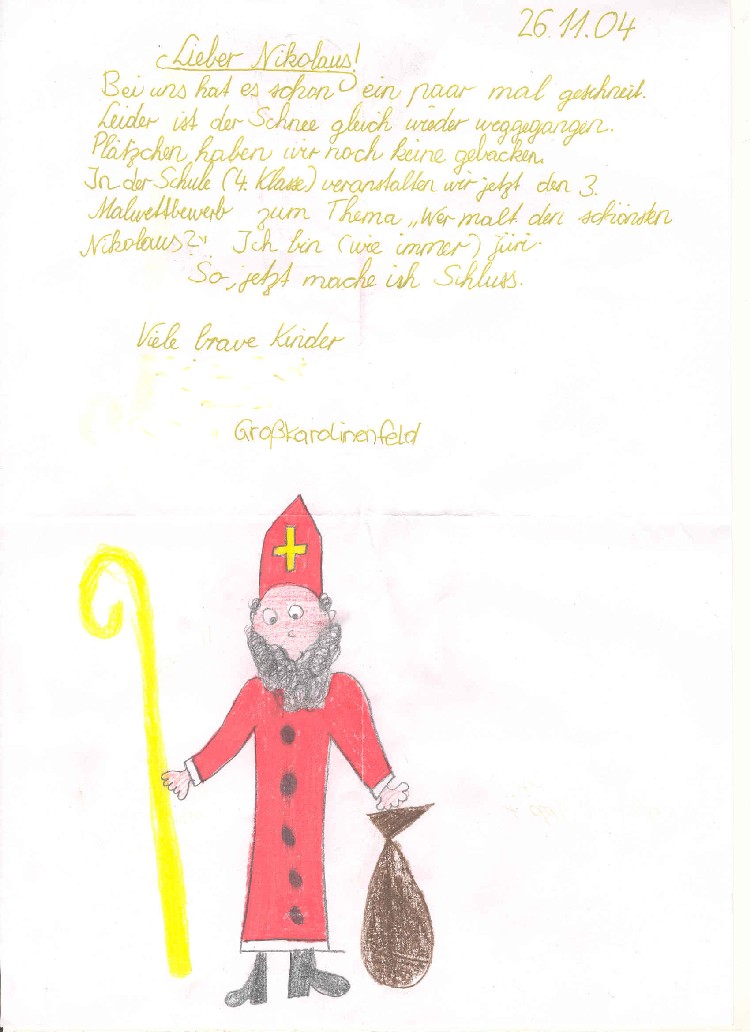 26.11.04
Lieber Nikolaus!
Bei uns hat es schon ein paar mal geschneit.
Leider ist der Schnee gleich wieder weggegangen.
Plätzchen haben wir noch keine gebacken.
In der Schule (4. Klasse) veranstalten wir jetzt den 3.
Malwettbewerb zum Thema „Wer malt den schönsten
Nikolaus?“ Ich bin (wie immer) Jüri.
So, jetzt mache ich Schluss.
Viele brave Kinder
Großkarolinenfeld